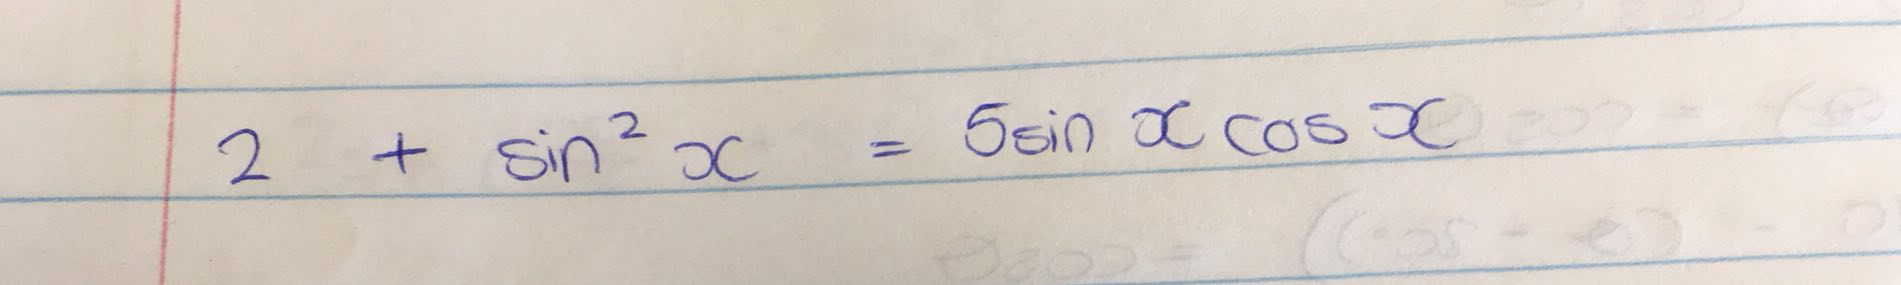 2 + sin² x = 5sin x cos x